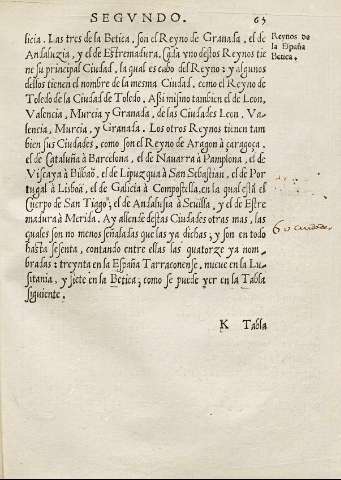 SEGVNDO. 65
licia. Las tres de la Betica, son el Reyno de Granada, el de
Andaluzia, y el de Estremadura. Cada vno destos Reynos tie
ne su principal Ciudad, la qual es cabo del Reyno: y algunos
dellos tienen el nombre de la mesma Ciudad, como el Reyno de
Toledo de la Ciudad de Toledo. Assi mismo tambien el de Leon,
Valencia, Murcia y Granada, de las Ciudades Leon, Va-
lencia, Murcia, y Granada. Los otros Reynos tienen tam
bien sus Ciudades, como son el Reyno de Aragon à çaragoça,
el de Cataluña à Barcelona, el de Nauarra à Pamplona, el de
Viscaya à Bilbaõ, el de Lipuzqua à San Sebastian, el de Por
tugal à Lisboa, el de Galicia à Compostella, en la qual està el
Cuerpo de San Tiago, el de Andalusia à Seuilla, y el de Estre
madura à Merida. Ay allende destas Ciudades otras mas, las
quales son no menos señaladas que las ya dichas; y son en todo
hasta sesenta, contando entre ellas las quatorze ya nom-
bradas: treynta en la España Tarraconense, nueue en la Lu-
sitania, y siete en la Betica; como se puede ver en la Tabla
siguiente.
K Tabla
Reynos de
la España
Betica.
60